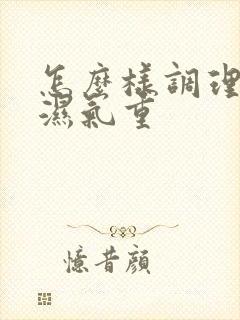 怎麼樣調理
濕氣重
憶昔顔